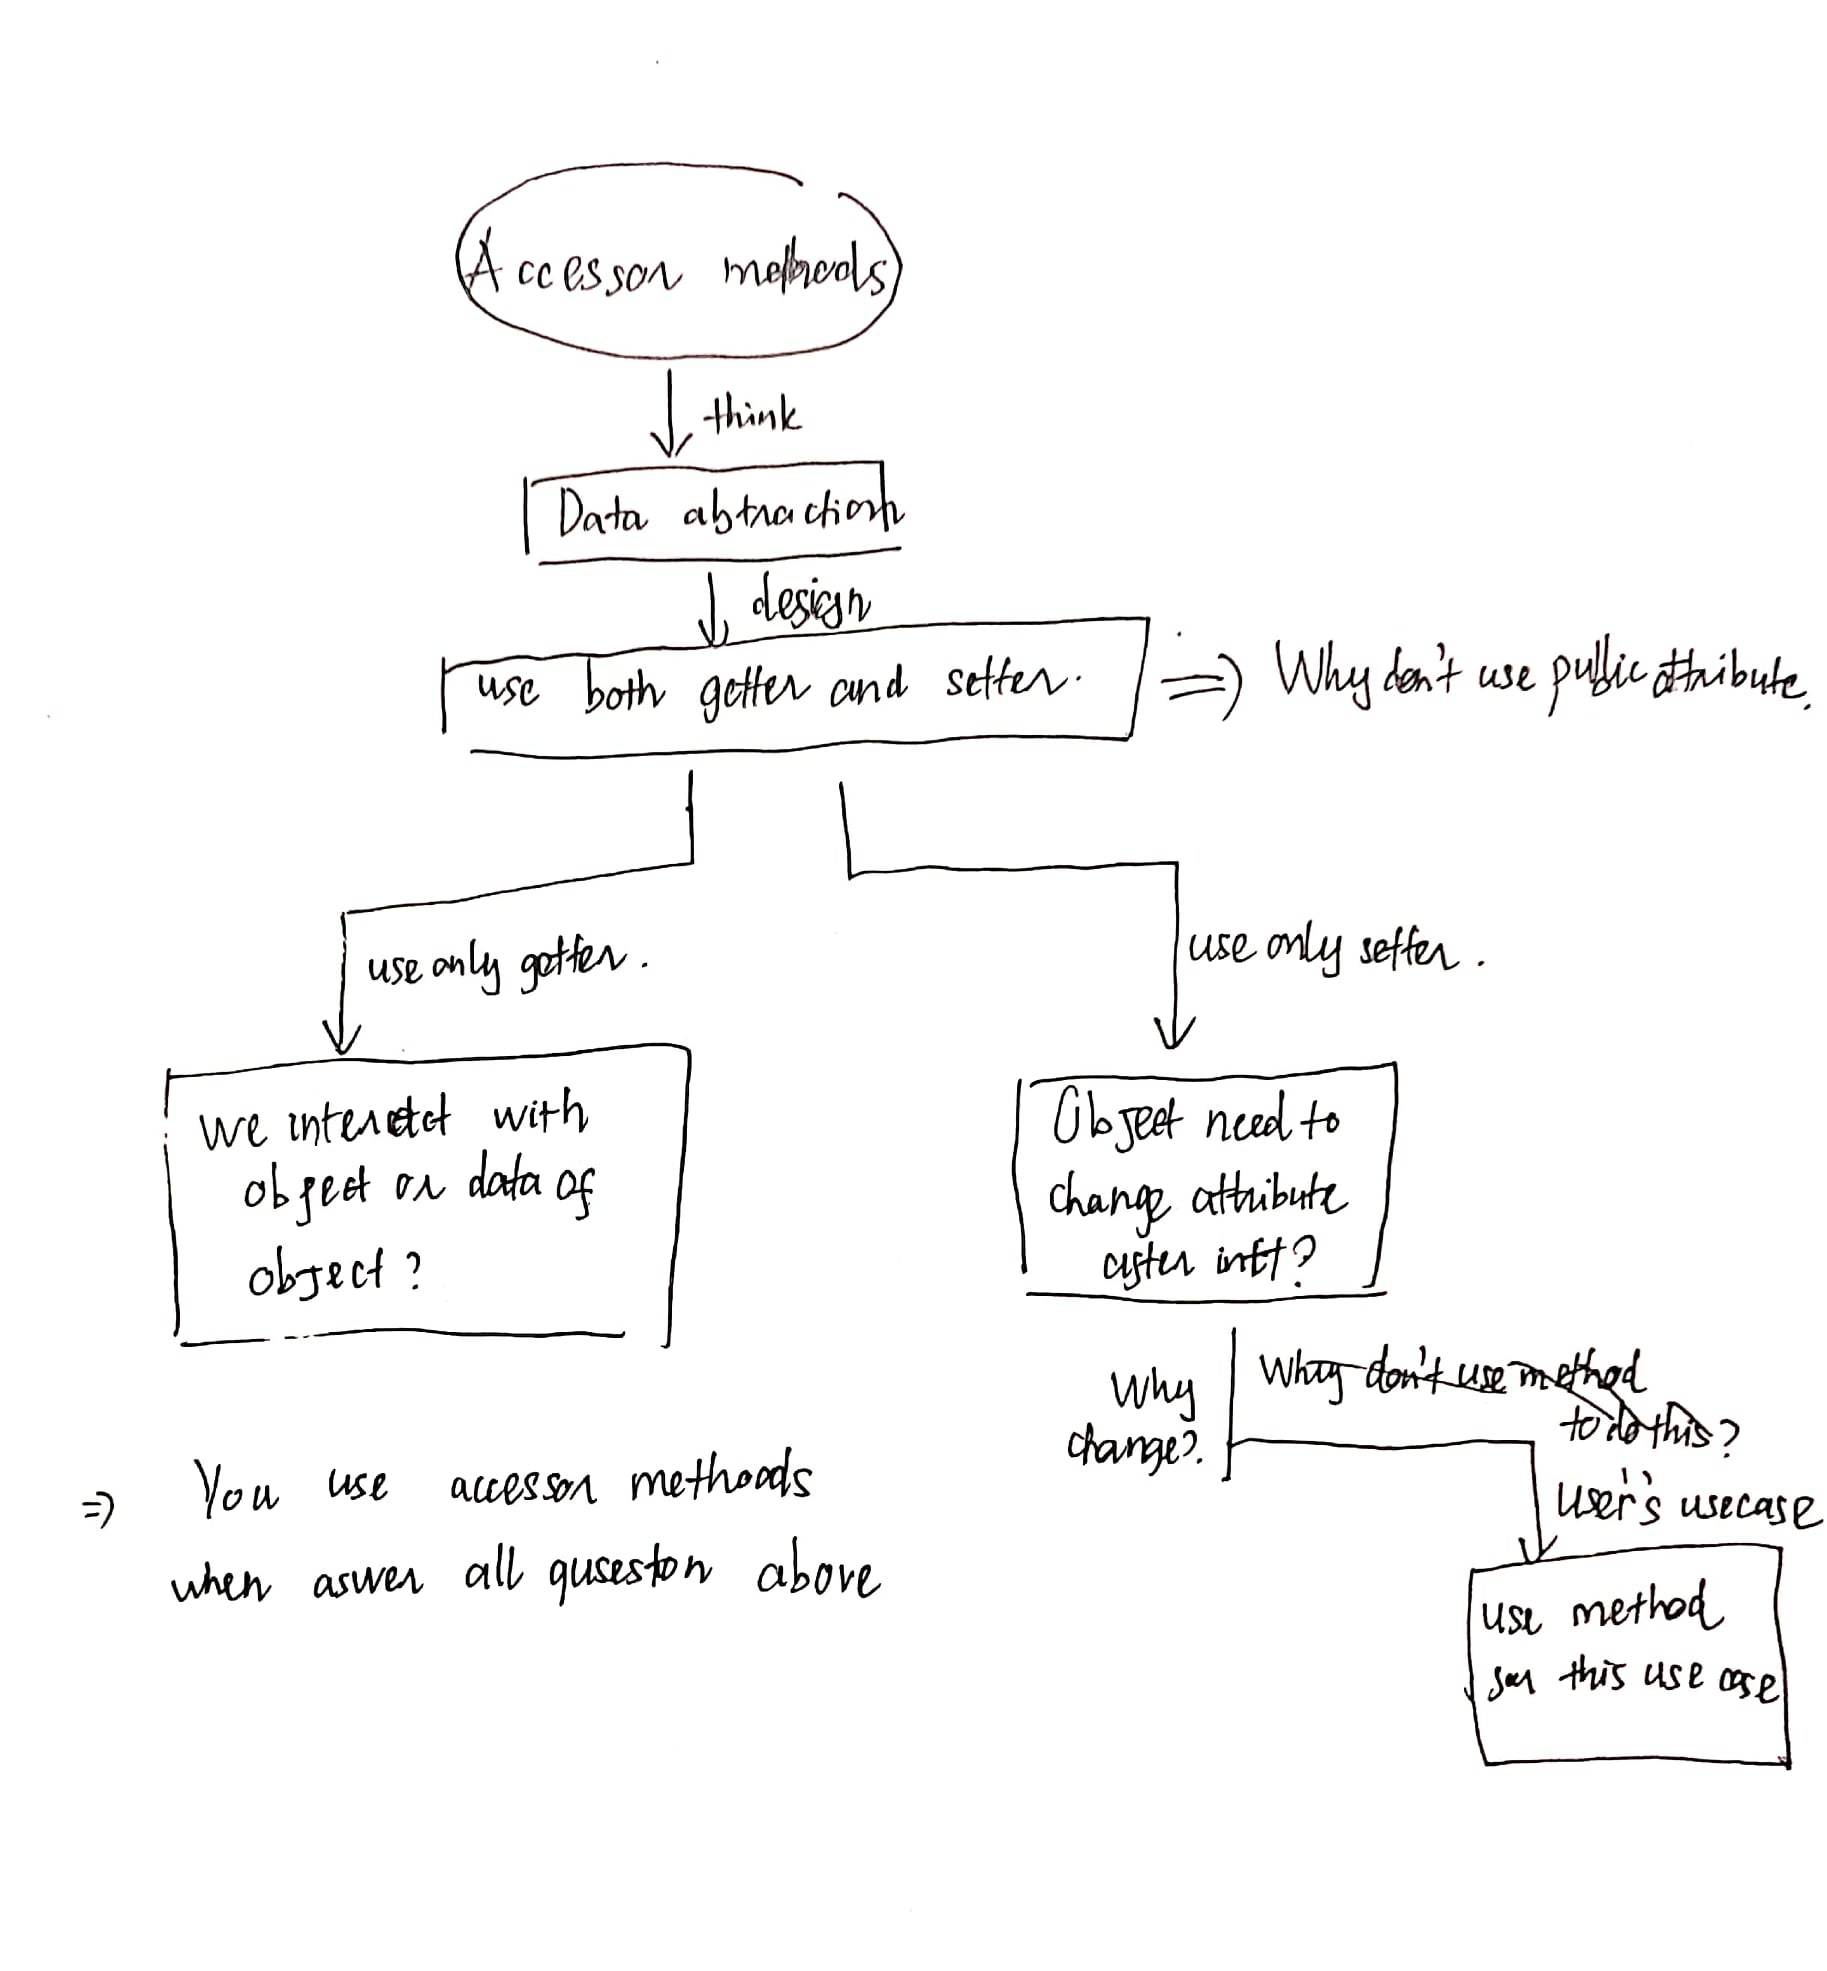 Accessor methods
think
Data abtraction
design
use both getter and setter.
=> Why don't use public attribute.
use only getter.
use only setter.
We interact with
object or data of
object?
Object need to
change attribute
after init?
Why
change?
Why don't use method
to do this?
User's usecase
use method
for this use case
=> You use accessor methoods
when aswer all quseston above